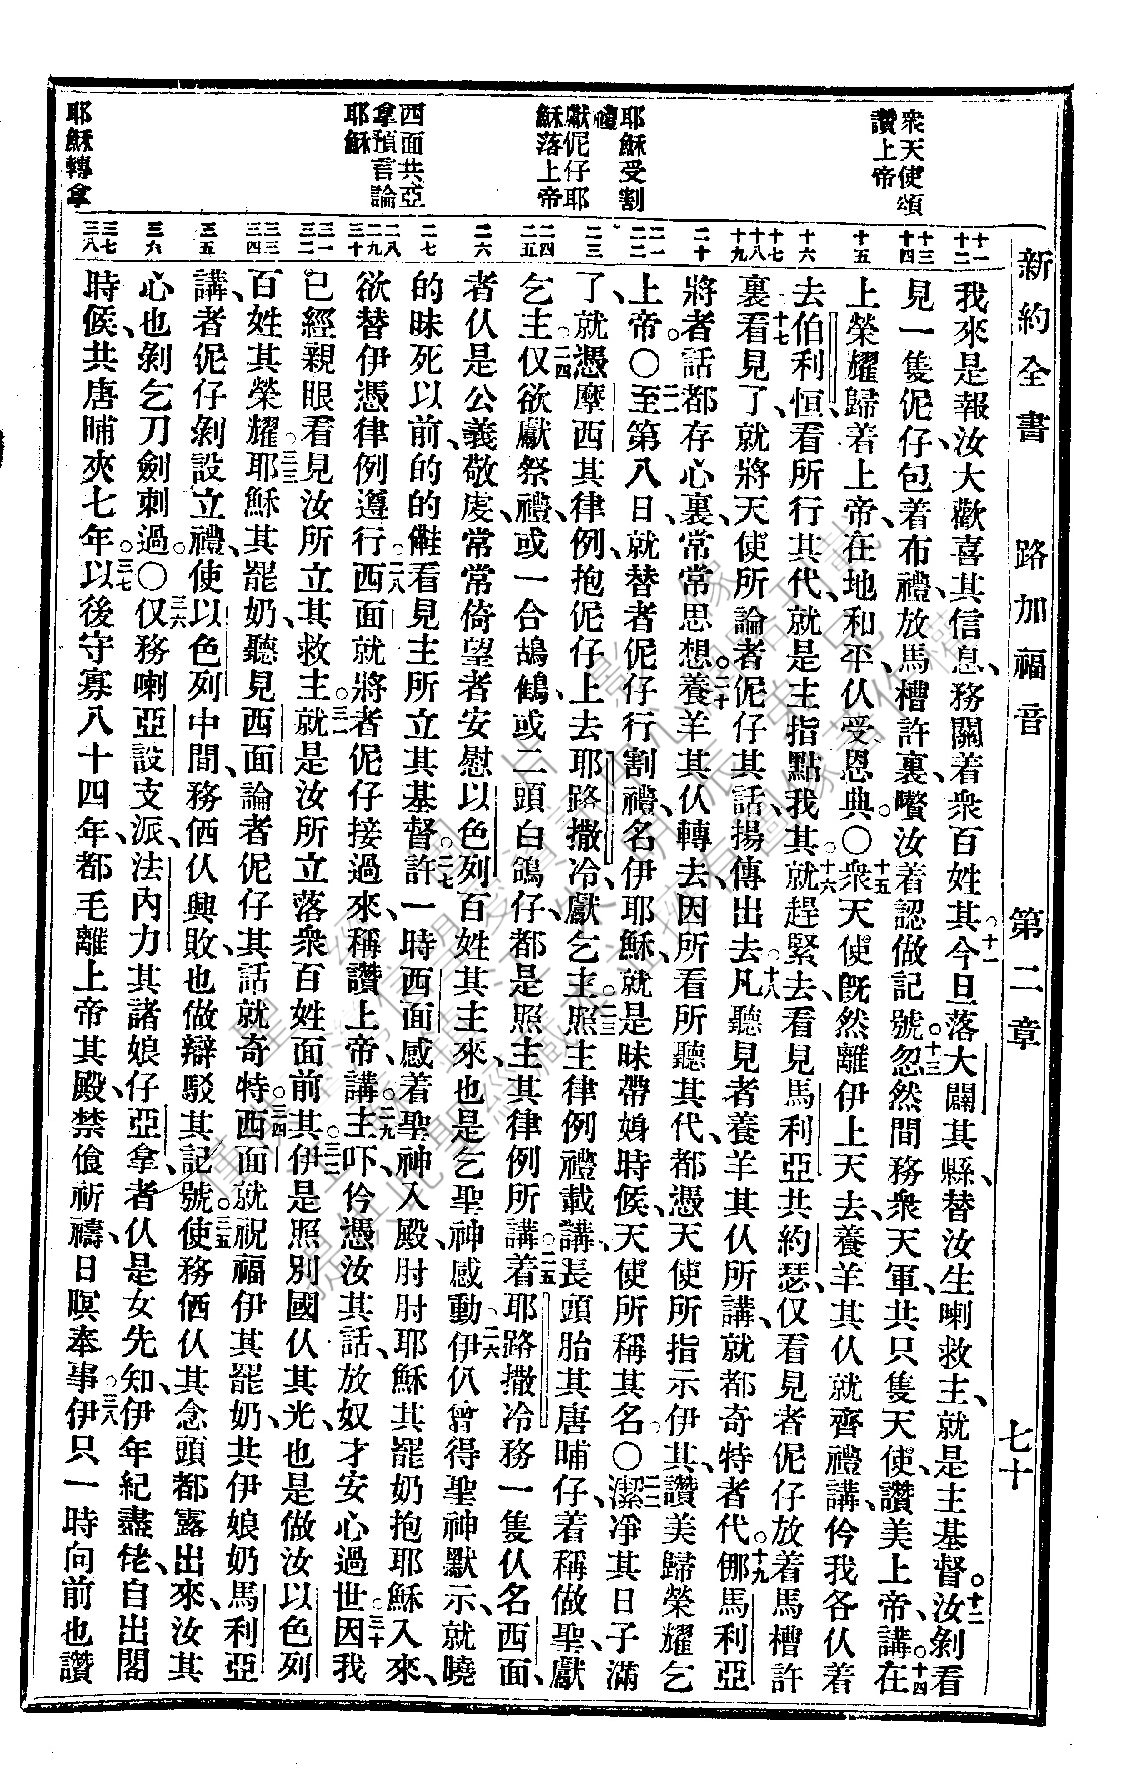 新約全書 路加福音 第二章 七十
衆天使頌
讚上帝
耶穌受割
禮
獻伲仔耶
穌落上帝
西面共亞
拿預言論
耶穌
耶穌轉拿
十一 十二
十三 十四
十五
十六
十七 十八 十九
二十
二一 二二
二三
二四 二五
二六
二七
二八 二九 三十
三一 三二
三三 三四
三五
三六
三七 三八
我來是報汝大歡喜其信息、務關着衆百姓其。十一今旦落大闢其縣、替汝生喇救主、就是主基督。十二汝剝看
見一隻伲仔包着布禮放馬槽許裏、嚽汝着認做記號。十三忽然間務衆天軍、共只隻天使、讚美上帝、講、十四在
上榮耀歸着上帝、在地和平、仈受恩典。〇十五衆天使旣然離伊上天去、養羊其仈就齊禮講、伶我各仈着
去伯利恒、看所行其代、就是主指點我其。十六就趕緊去、看見馬利亞共約瑟、仅看見者伲仔放着馬槽許
裏。十七看見了、就將天使所論者伲仔其話、揚傳出去。十八凡聽見者養羊其仈所講、就都奇特者代。十九㑚馬利亞
將者話都存心裏、常常思想。二十養羊其仈轉去、因所看所聽其代、都憑天使所指示伊其、讚美歸榮耀乞
上帝。〇二一至第八日、就替者伲仔行割禮、名伊耶穌、就是昧帶娠時候、天使所稱其名。〇二二潔凈其日子滿
了、就憑摩西其律例、抱伲仔上去耶路撒冷、獻乞主。二三照主律例禮載講、長頭胎其唐晡仔、着稱做聖、獻
乞主。二四仅欲獻祭禮、或一合鴣鶴、或二頭白鴿仔、都是照主其律例所講。二五着耶路撒冷務一隻仈名西面、
者仈是公義敬虔、常常倚望者安慰以色列百姓其主來、也是乞聖神感動。二六伊仈曾得聖神默示、就曉
的昧死以前、的的㒕看見主所立其基督許。二七一時西面感着聖神入殿、肘肘耶穌其罷奶抱耶穌入來、
欲替伊憑律例遵行。二八西面就將者伲仔接過來、稱讚上帝、講。二九主吓、伶憑汝其話、放奴才安心過世。三十因我
已經親眼看見汝所立其救主。三一就是汝所立落衆百姓面前其。三二伊是照別國仈其光、也是做汝以色列
百姓其榮耀。三三耶穌其罷奶、聽見西面論者伲仔其話就奇特。三四西面就祝福伊其罷奶、共伊娘奶馬利亞
講、者伲仔剝設立禮、使以色列中間、務俩仈興敗、也做辯駁其記號。三五使務俩仈其念頭都露出來、汝其
心也剝乞刀劍刺過。〇三六仅務喇亞設支派、法內力其諸娘仔亞拿、者仈是女先知、伊年紀盡佬、自出閣
時候、共唐晡夾七年。三七以後守寡八十四年、都毛離上帝其殿、禁飡祈禱、日暝奉事伊。三八只一時向前也讚